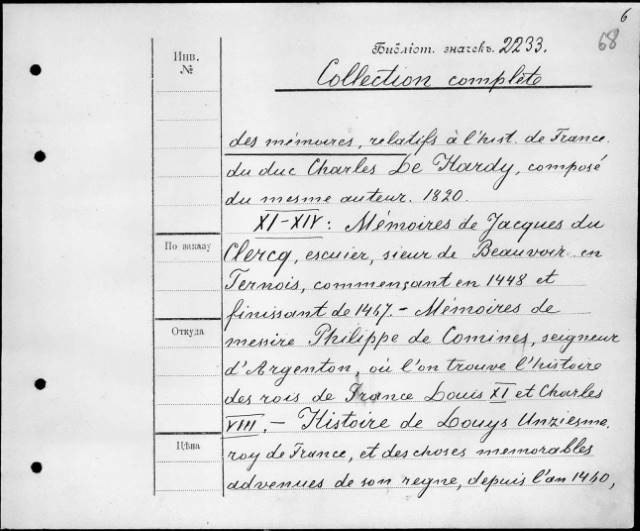 6
68
Инв.
№
Библіот. значекъ. 2233.
Collection complète
des mémoires, relatifs à l'hist. de France.
du duc Charles De Hardy, composé
du mesme auteur. 1820.
XI-XIV: Mémoires de Jacques du
По заказу
Clercq, escuier, sieur de Beauvoir en
Ternois, commençant en 1448 et
finissant de 1467. - Mémoires de
Откуда
messire Philippe de Comines, seigneur
d'Argenton, où l'on trouve l'histoire
des rois de France Louis XI et Charles
VIII. - Histoire de Louys Unziesme
Цѣна
roy de France, et des choses memorables
advenues de son regne, depuis l'an 1460,